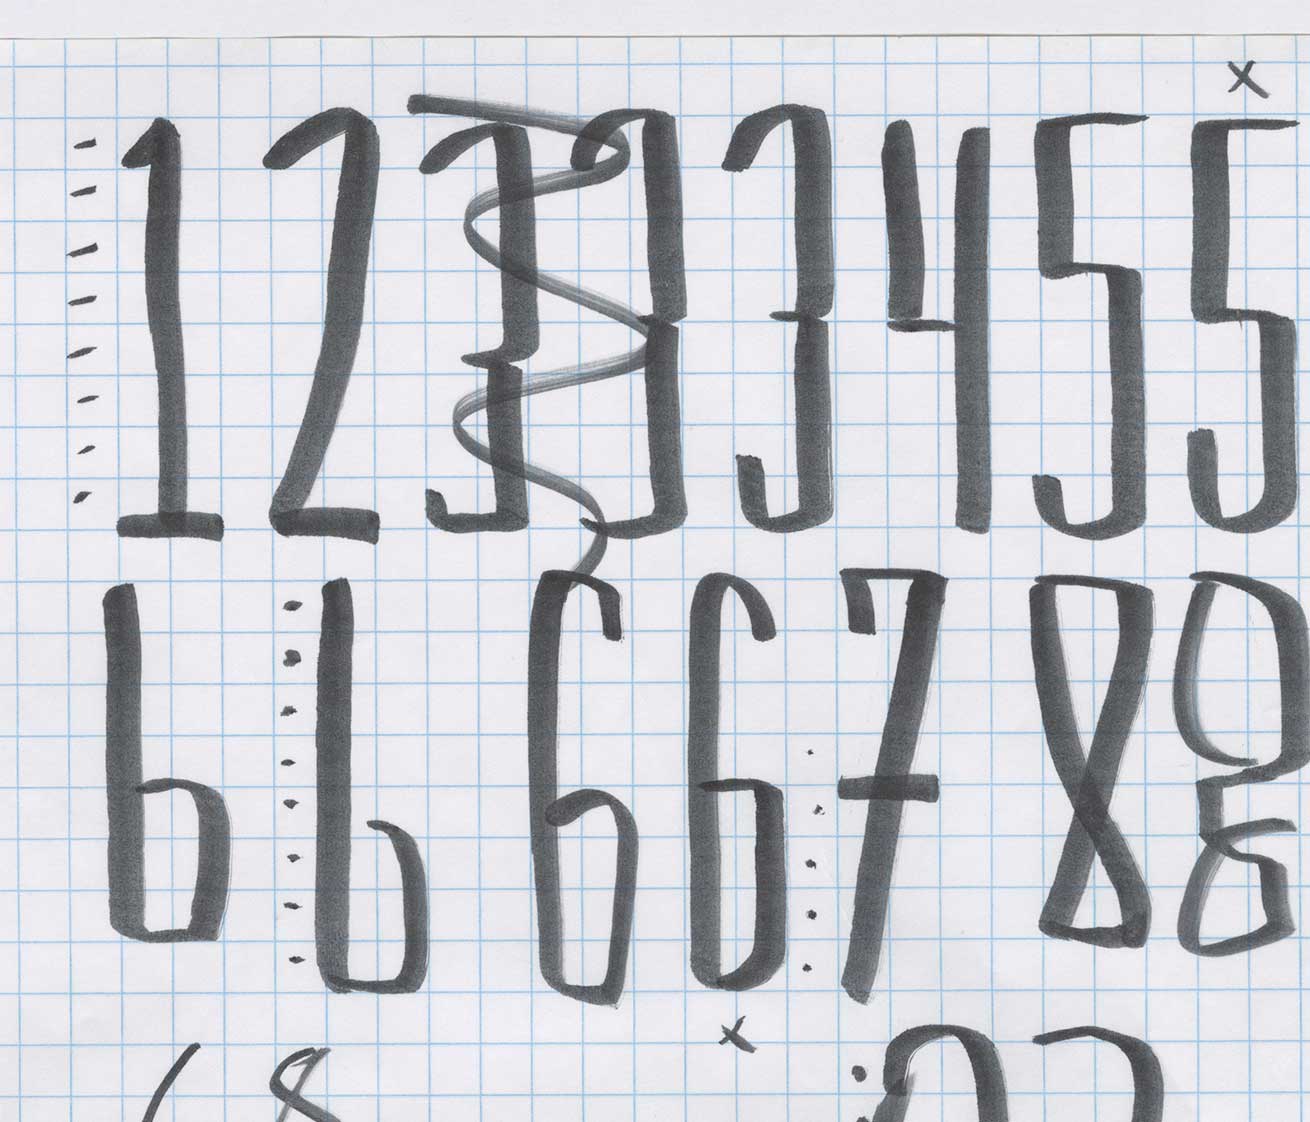 x
1 2 3 3 3 4 5 5
6 6 6 6 7 8 8
x